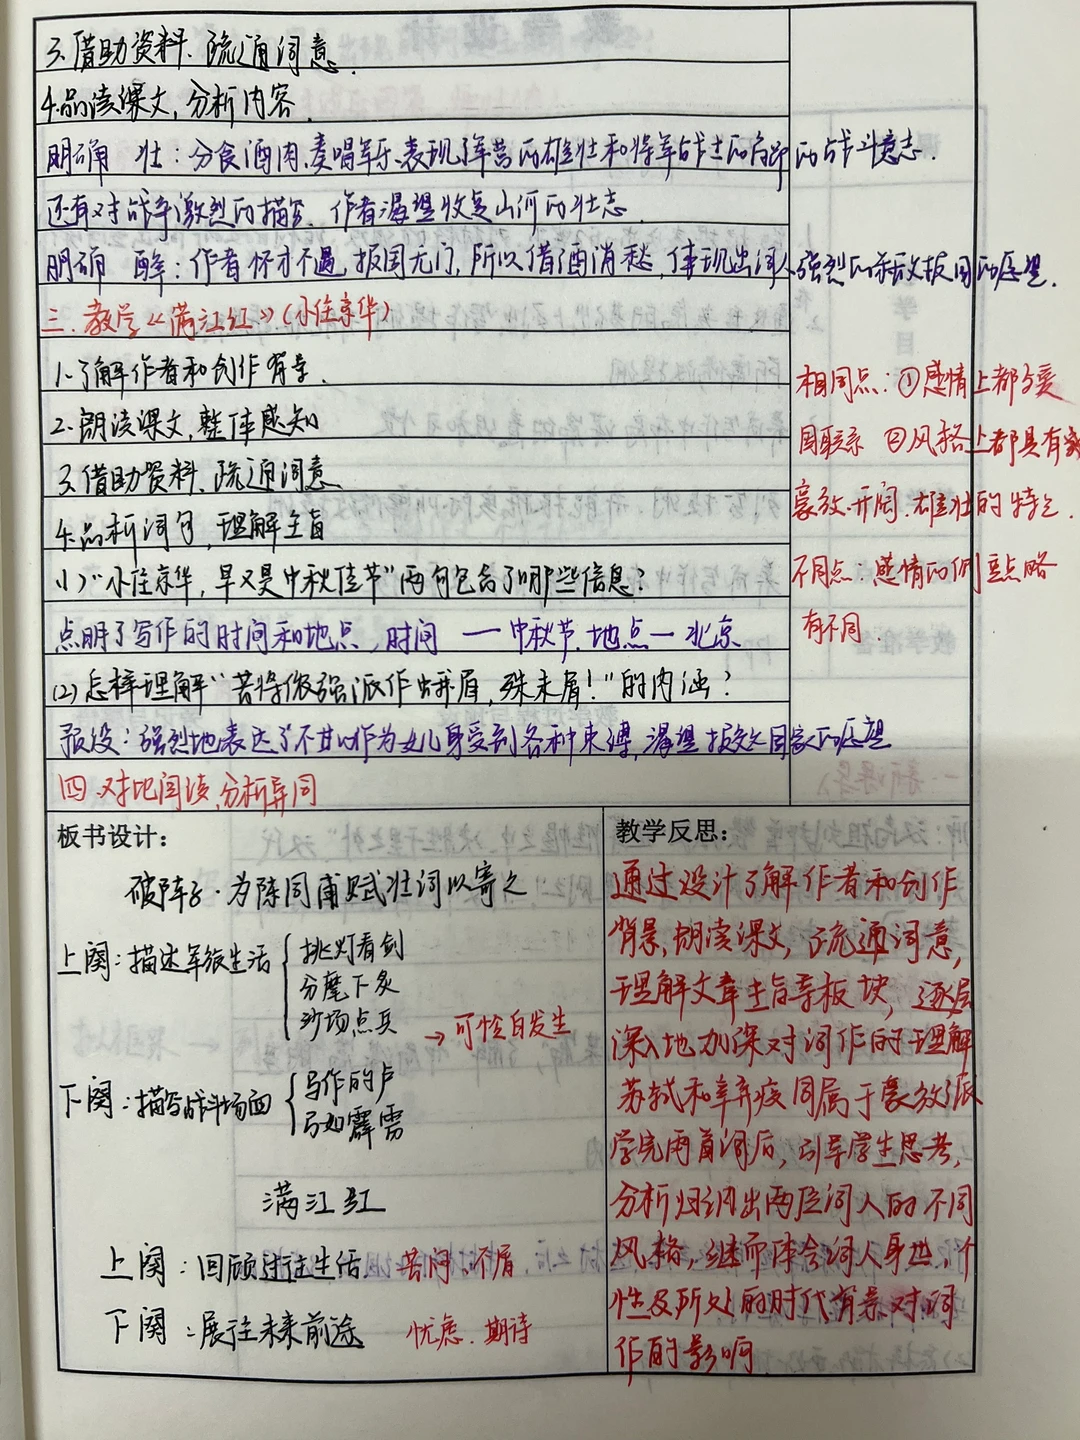 3.借助资料、疏通词意.
4.品读课文,分析内容.
明确 壮:分食酒肉、奏唱军乐、表现了军营的雄壮和将军战士的高昂的战斗意志.
还有对战争激烈的描写、作者渴望收复山河的壮志.
明确 醉:作者怀才不遇,报国无门,所以借酒消愁,体现出词人强烈的杀敌报国的愿望.
三、教学《满江红》(小住京华)
1.了解作者和创作背景.
2.朗读课文,整体感知
3.借助资料、疏通词意
4.品析词句,理解主旨
(1)“小住京华,早又是中秋佳节”两句包含了哪些信息?
点明了写作的时间和地点,时间 —中秋节、地点—北京
(2)怎样理解“苦将侬强派作蛾眉,殊未屑!”的内涵?
预设:强烈地表达了不甘心作为女儿身受到各种束缚,渴望报效国家的愿望
四、对比阅读,分析异同
相同点:①感情上都与爱
国联系 ②风格上都具有
豪放、开阔、雄壮的特点.
不同点:感情的侧重点略
有不同.
板书设计:
破阵子·为陈同甫赋壮词以寄之
上阕:描述军旅生活
挑灯看剑
分麾下炙
沙场点兵
→可怜白发生
下阕:描写战斗场面
马作的卢
弓如霹雳
满江红
上阕:回顾过往生活 苦闷、不屑
下阕:展往未来前途 忧虑、期待
教学反思:
通过设计了解作者和创作
背景,朗读课文,疏通词意,
理解文章主旨等板块,逐层
深入地加深对词作的理解
苏轼和辛弃疾同属于豪放派
学完两首词后,引导学生思考,
分析归纳出两位词人的不同
风格,继而体会词人身世、个
性及所处的时代背景对词
作的影响.